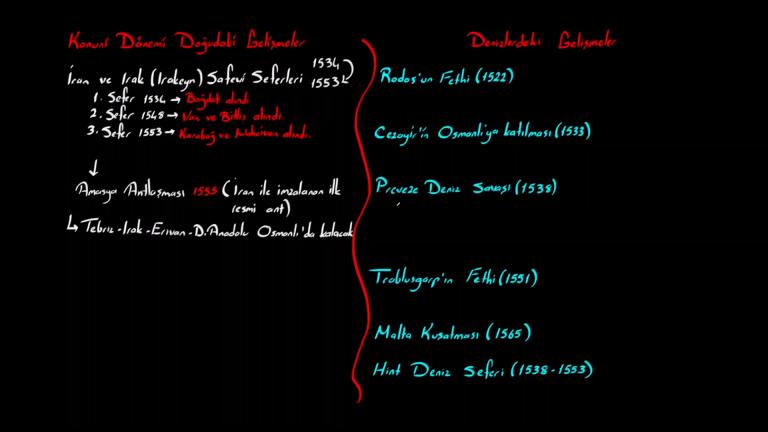 Kanuni Dönemi Doğudaki Gelişmeler
İran ve Irak (Irakeyn) Safevi Seferleri 1534 1553
1. Sefer 1534 → Bağdat alındı
2. Sefer 1548 → Van ve Bitlis alındı.
3. Sefer 1553 → Karabağ ve Nahcivan alındı.
Amasya Antlaşması 1555 (İran ile imzalanan ilk
resmi ant)
↳ Tebriz-Irak-Erivan-D.Anadolu Osmanlı'da kalacak
Denizlerdeki Gelişmeler
Rodos'un Fethi (1522)
Cezayir'in Osmanlı'ya katılması (1533)
Preveze Deniz Savaşı (1538)
Trablusgarp'ın Fethi (1551)
Malta Kuşatması (1565)
Hint Deniz Seferi (1538-1553)